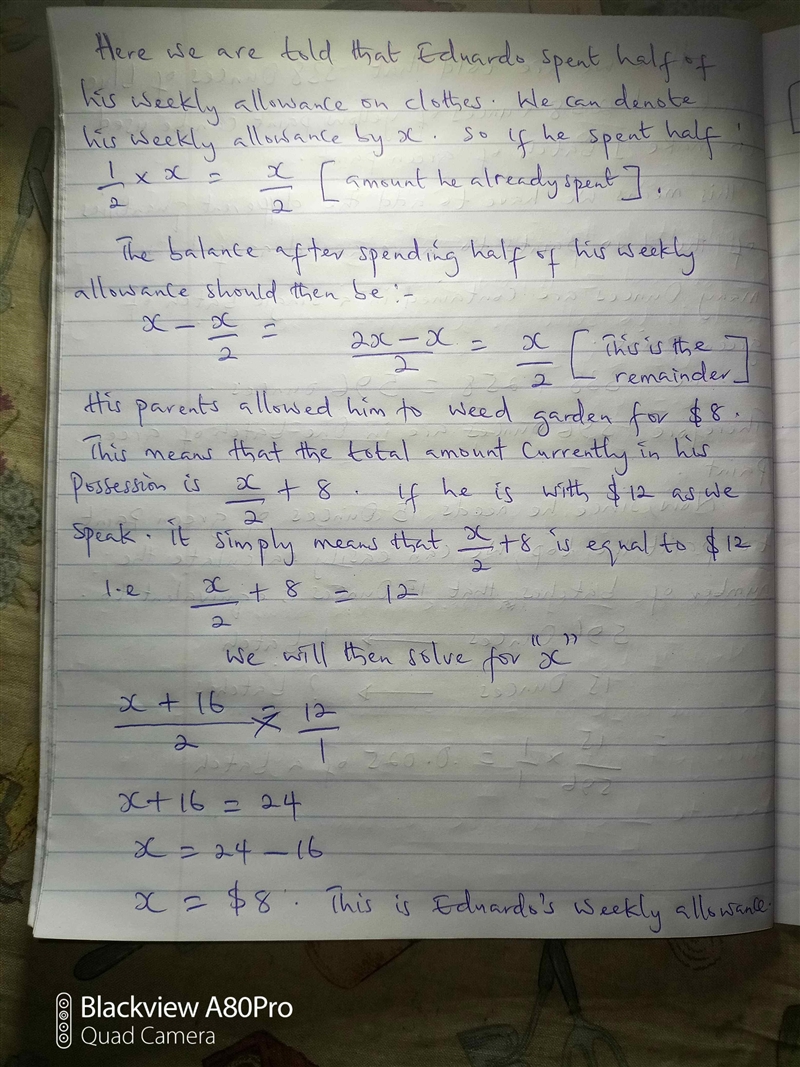 Here we are told that Eduardo spent half of
his weekly allowance on clothes. We can denote
his weekly allowance by x. So if he spent half :
1/2 × x = x/2 [amount he already spent].
The balance after spending half of his weekly
allowance should then be :-
x - x/2 = 2x - x/2 = x/2 [This is the remainder]
His parents allowed him to weed garden for $8.
This means that the total amount currently in his
Possession is x/2 + 8. If he is with $12 as we
speak. it simply means that x/2 + 8 is equal to $12
I.e x/2 + 8 = 12
we will then solve for "x"
x + 16/2 = 12/1
x + 16 = 24
x = 24 - 16
x = $8. This is Eduardo's weekly allowance.
Blackview A80Pro
Quad Camera